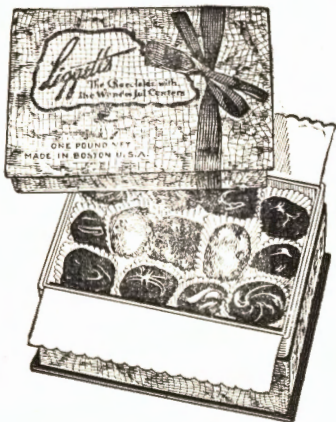 Liggett's
The Chocolates with
the Wonderful Centers
ONE POUND NET
MADE IN BOSTON U.S.A.